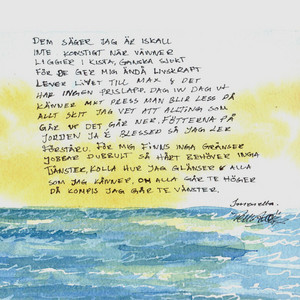 DEM SÄGER JAG ÄR ISKALL
INTE KONSTIGT NÄR VÄNNER
LIGGER I KISTA, GANSKA SJUKT
FÖR DE GER MIG ÄNDÅ LIVSKRAFT
LEVER LIVET TILL MAX & DET
HAR INGEN PRISLAPP. DAG IN DAG UT
KÄNNER MKT PRESS MAN BLIR LESS PÅ
ALLT SKIT JAG VET ATT ALLTING SOM
GÅR UT DET GÅR NER. FÖTTERNA PÅ
JORDEN JA É BLESSED SÅ JAG LER
FÖRSTÅRU. FÖR MIG FINNS INGA GRÄNSER
JOBBAR DUBBELT SÅ HÅRT BEHÖVER INGA
TJÄNSTER, KOLLA HUR JAG GLÄNSER & ALLA
SOM JAG KÄNNER, OM ALLA GÅR TE HÖGER
DÅ KOMPIS JAG GÅR TE VÄNSTER.